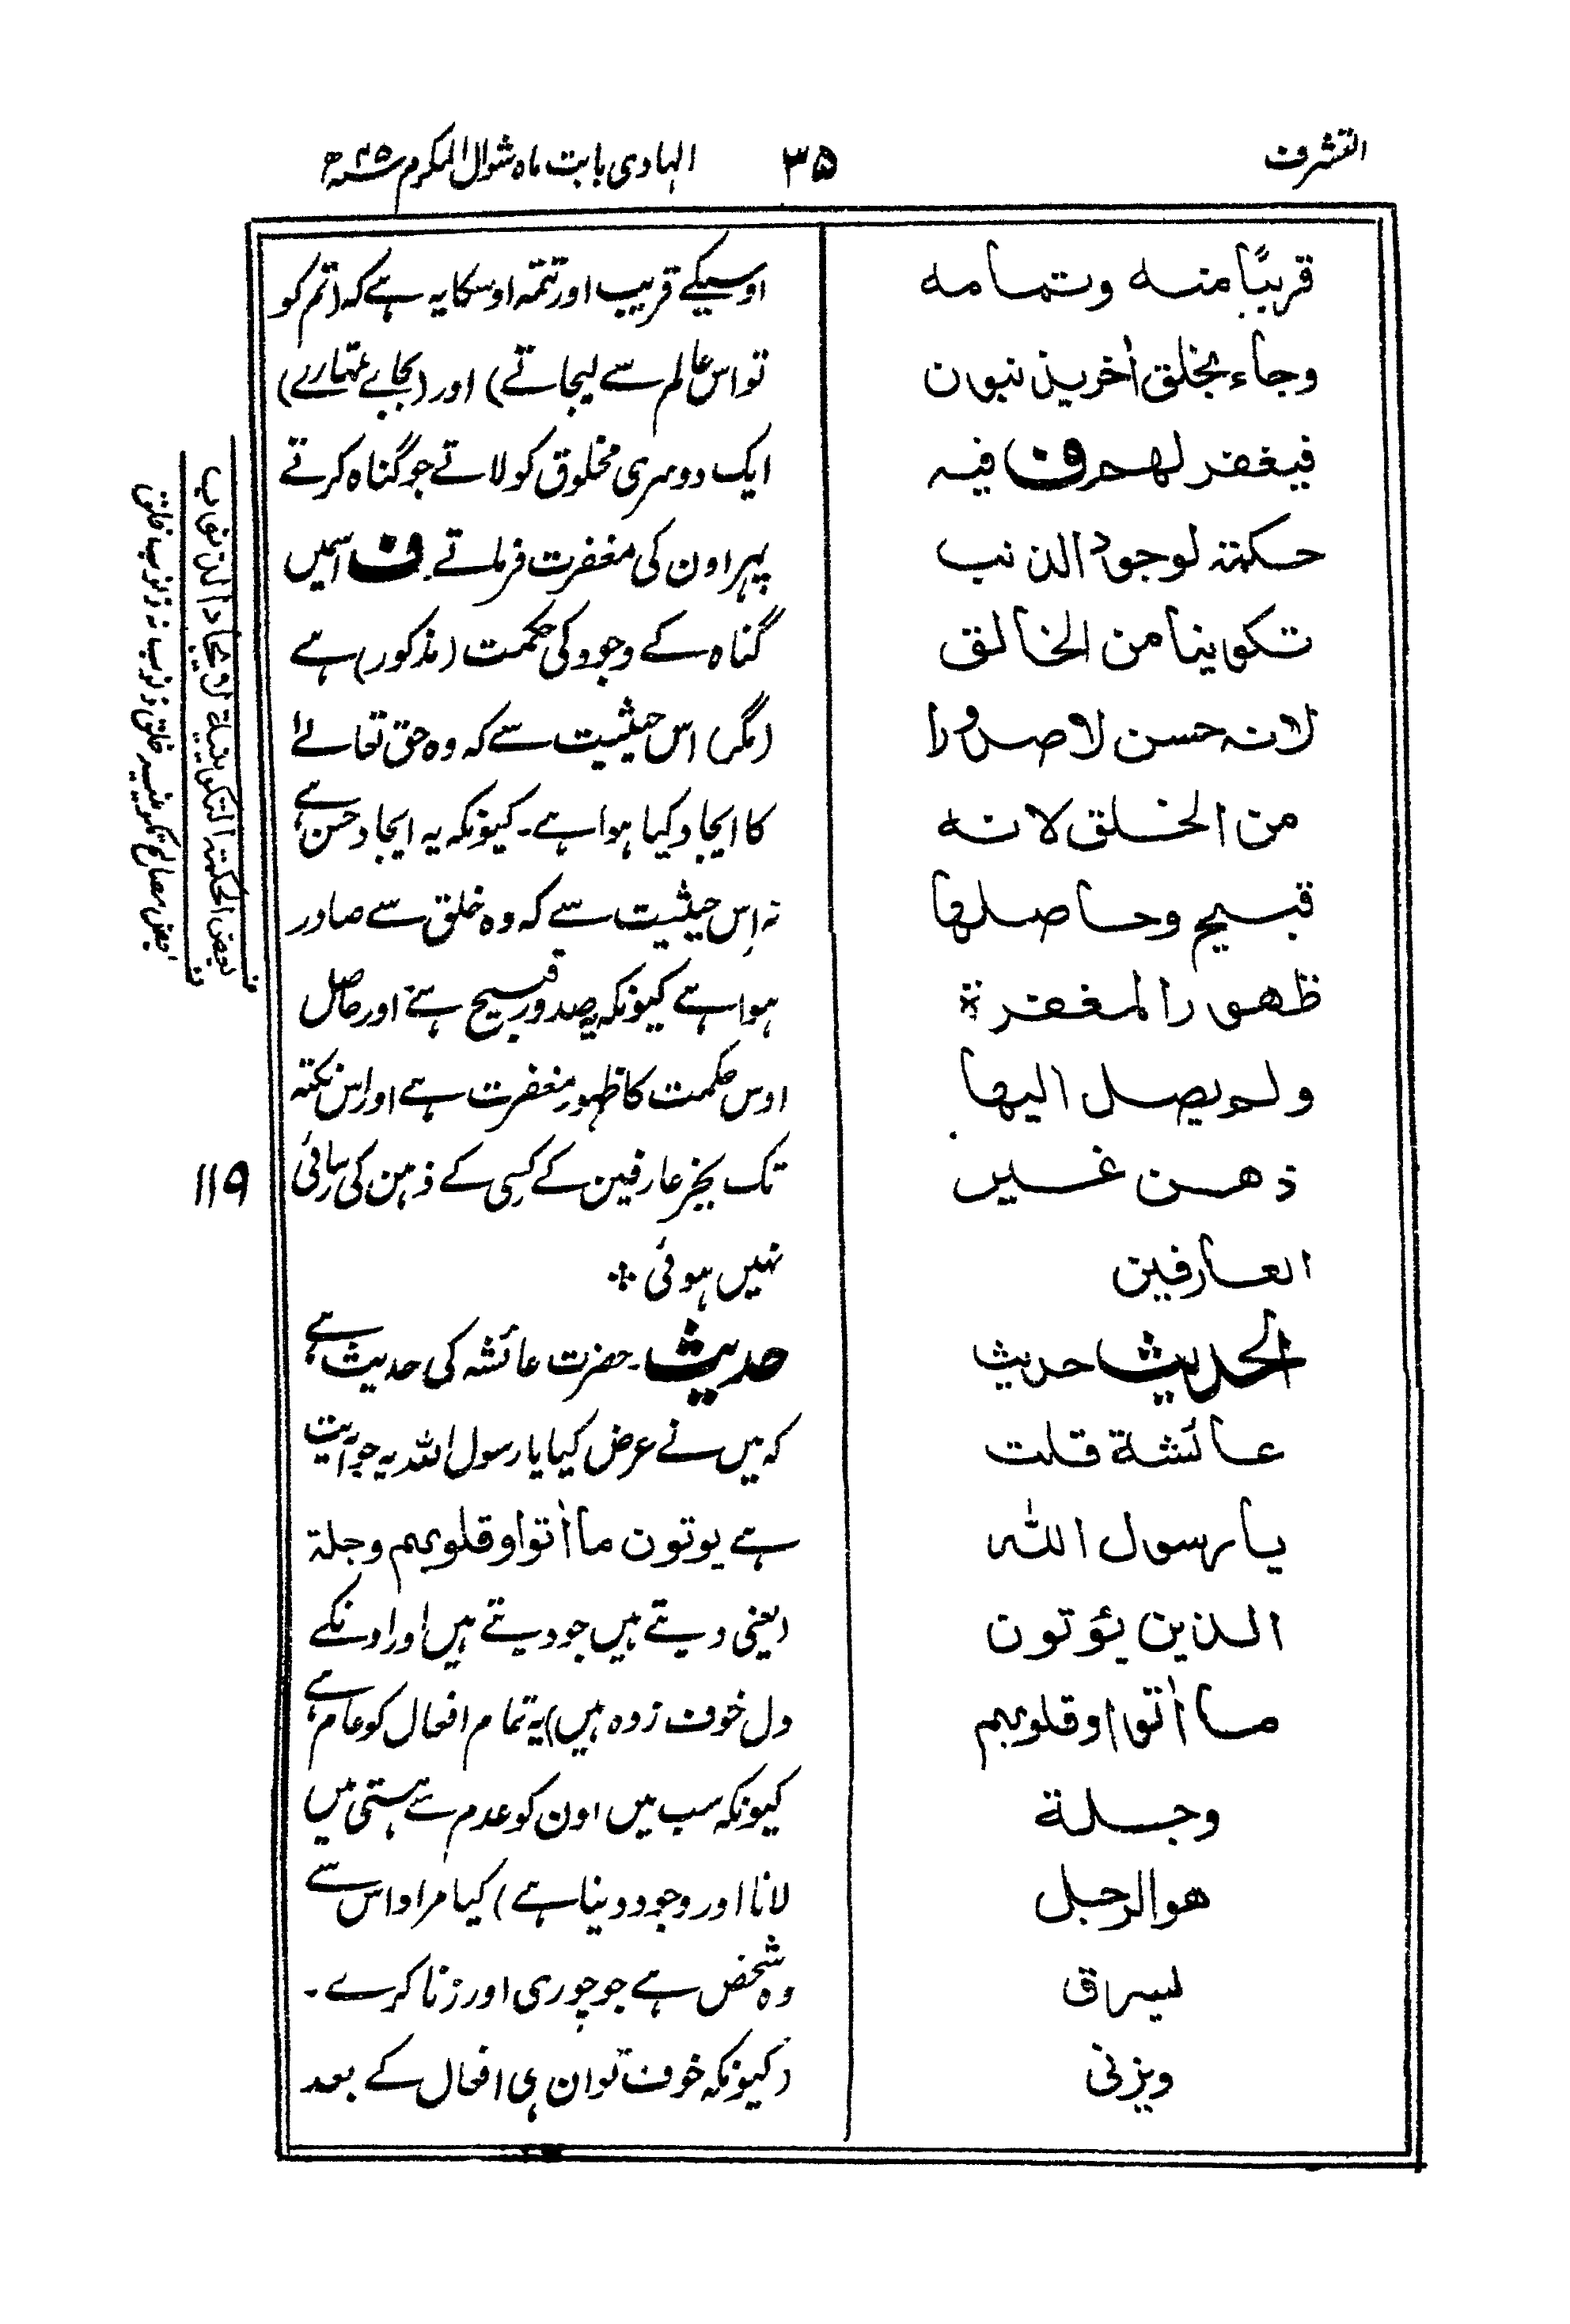 التشرف
۳۵
الہادی بابت ماہ شوال المکرم ۴۵ھ
قريبًا منه وتمامه
وجاء بخلق اٰخرين يذنبون
فيغفر لهم ف فيه
حكمة لوجود الذنب
تكوينا من الخالق
لانه حسن لا صدورا
من الخلق لانه
قبيح وحاصلها
ظهور المغفرة
ولم يصل اليها
ذهن غير
العارفين
الحديث حديث
عائشة قلت
يا رسول الله
الذين يؤتون
ما اٰتوا وقلوبهم
وجلة
هو الرجل
يسرق
ويزنى
اوسیکے قریب اور تتمہ اوسکا یہ ہے کہ (تم کو
تو اس عالم سے لیجاتے) اور (بجاے تمہارے)
ایک دوسری مخلوق کو لاتے جو گناہ کرتے
پہر اون کی مغفرت فرماتے۔ ف اسمیں
گناہ کے وجود کی حکمت (مذکور) ہے
(مگر) اس حیثیت سے کہ وہ حق تعالےٰ
کا ایجاد کیا ہوا ہے۔ کیونکہ یہ ایجاد حسن ہے
نہ اِس حیثیت سے کہ وہ خلق سے صادر
ہوا ہے کیونکہ یہ صدور قبیح ہے اور حاصل
اوس حکمت کا ظہور مغفرت ہے اور اس نکتہ
تک بجز عارفین کے کسی کے ذہن کی رسائی
نہیں ہوئی ❖
حدیث۔ حضرت عائشہ کی حدیث ہے
کہ میں نے عرض کیا یا رسول اللہ یہ جو آیت
ہے یوتون ما اٰتوا وقلوبہم وجلۃ
(یعنی دیتے ہیں جو دیتے ہیں اور اونکے
دل خوف زدہ ہیں) یہ تمام افعال کو عام ہے
کیونکہ سب میں اون کو عدم سے ہستی میں
لانا اور وجود دینا ہے) کیا مراد اس سے
وہ شخص ہے جو چوری اور زنا کرے۔
(کیونکہ خوف تو ان ہی افعال کے بعد
بعض الحكمة التكوينية لايجاد الذنوب
بعض مصالح تکوینیہ خلق ذنوب
۱۱۹